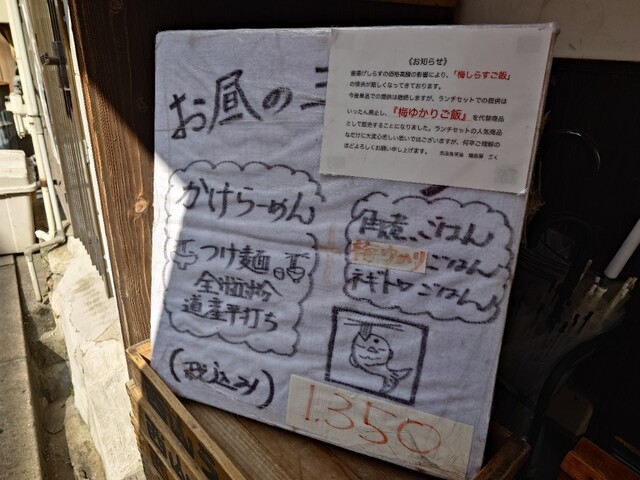 お昼の三
《お知らせ》
釜揚げしらすの価格高騰の影響により、「梅しらすご飯」
の提供が厳しくなってきております。
今後単品での提供は継続しますが、ランチセットでの提供は
いったん廃止し、『梅ゆかりご飯』を代替商品
として販売することになりました。ランチセットの人気商品
なだけに大変心苦しい思いではございますが、何卒ご理解の
ほどよろしくお願い申し上げます。
かけらーめん
つけ麺
全粒粉
道産平打ち
角煮ごはん
梅ゆかりごはん
ネギトロごはん
(税込み)
1.350